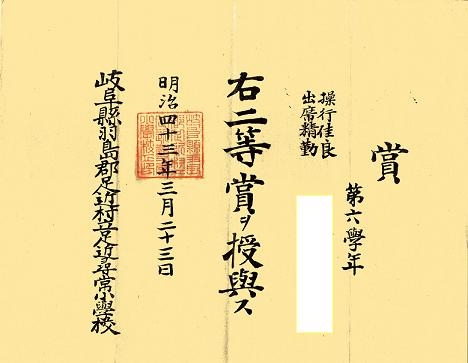 賞
第六學年
操行佳良
出席精勤
右二等賞ヲ授與ス
明治四十三年三月二十三日
岐阜縣羽島郡足近村立足近尋常小學校